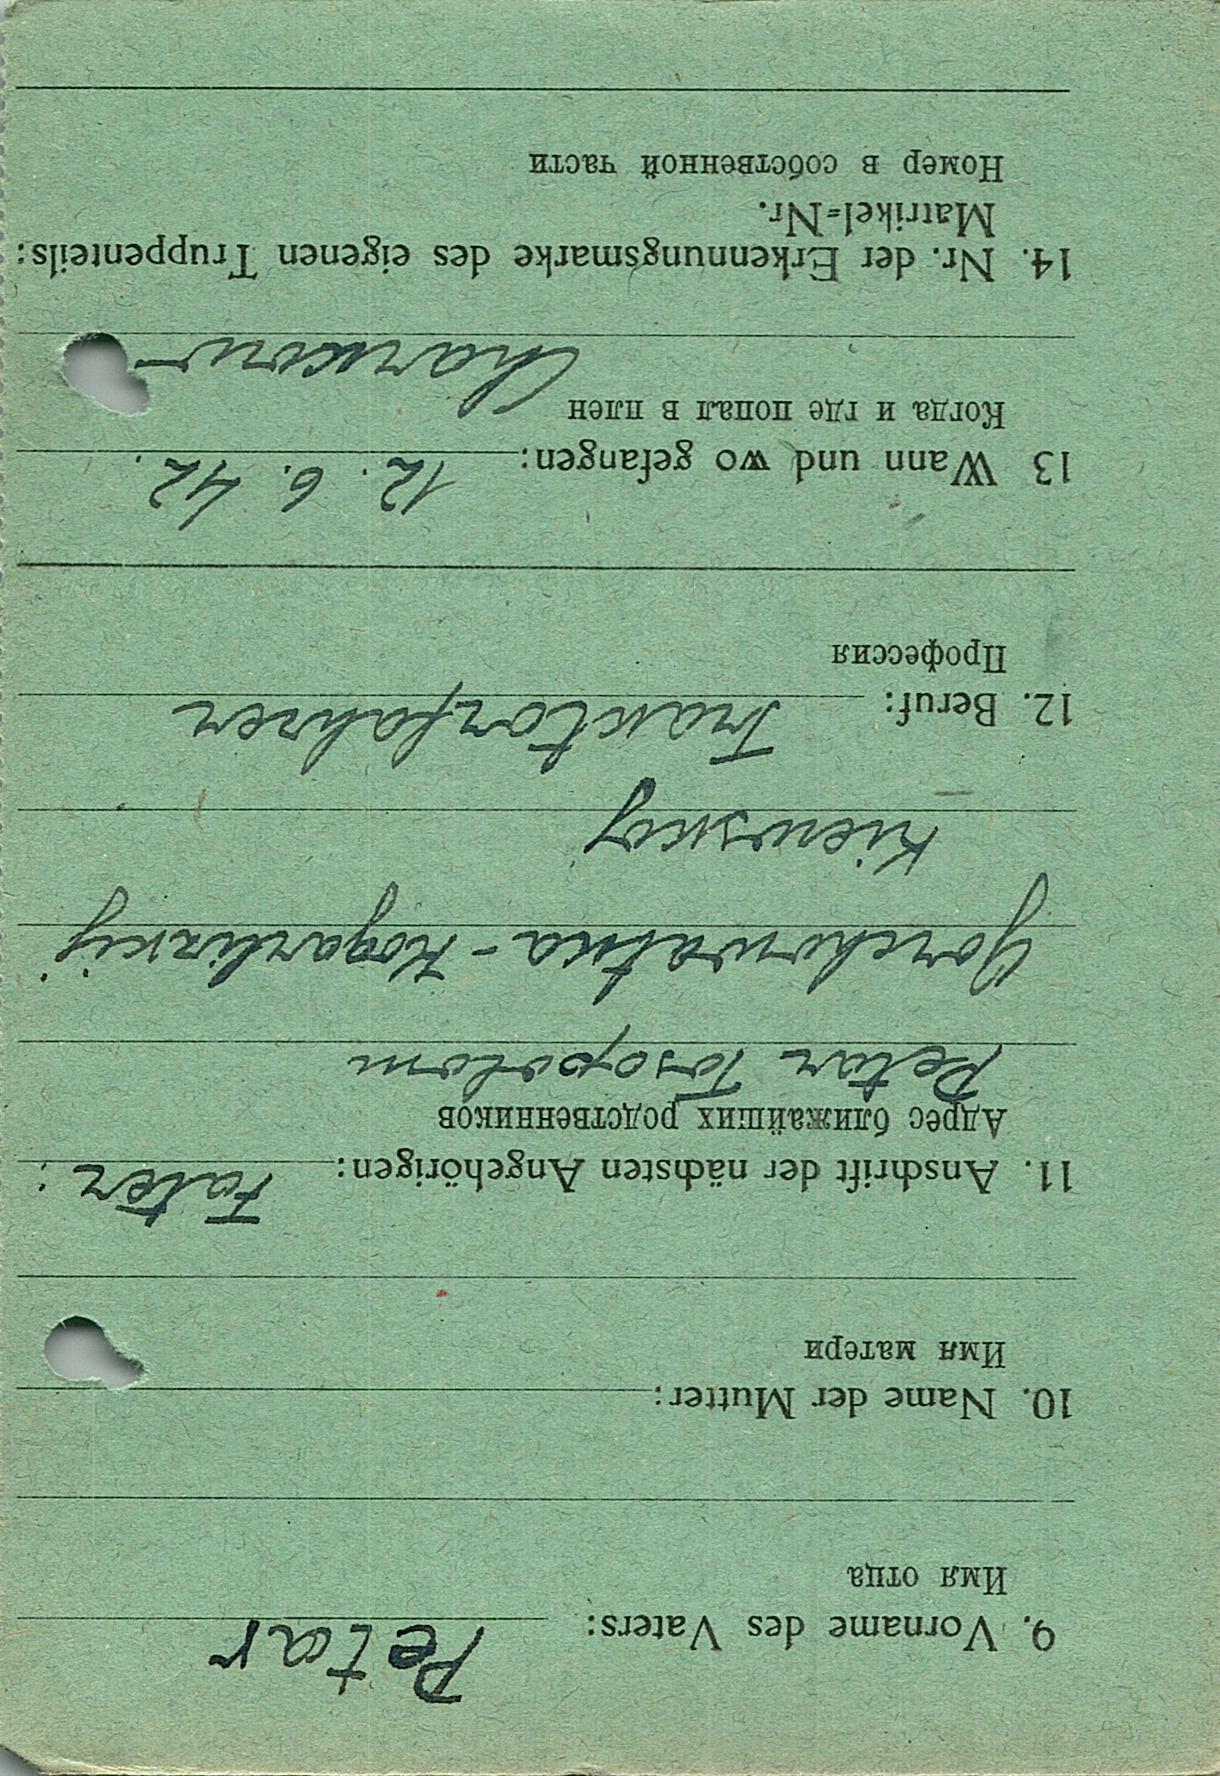 9. Vorname des Vaters: Petar
Имя отца
10. Name der Mutter:
Имя матери
11. Anschrift der nächsten Angehörigen: Fater:
Адрес ближайших родственников
Petar
Kogarlizkij
Kiewskoj
12. Beruf: Traktorfahrer
Профессия
13 Wann und wo gefangen: 12. 6. 42.
Когда и где попал в плен
Charkow
14. Nr. der Erkennungsmarke des eigenen Truppenteils:
Matrikel=Nr.
Номер в собственной части